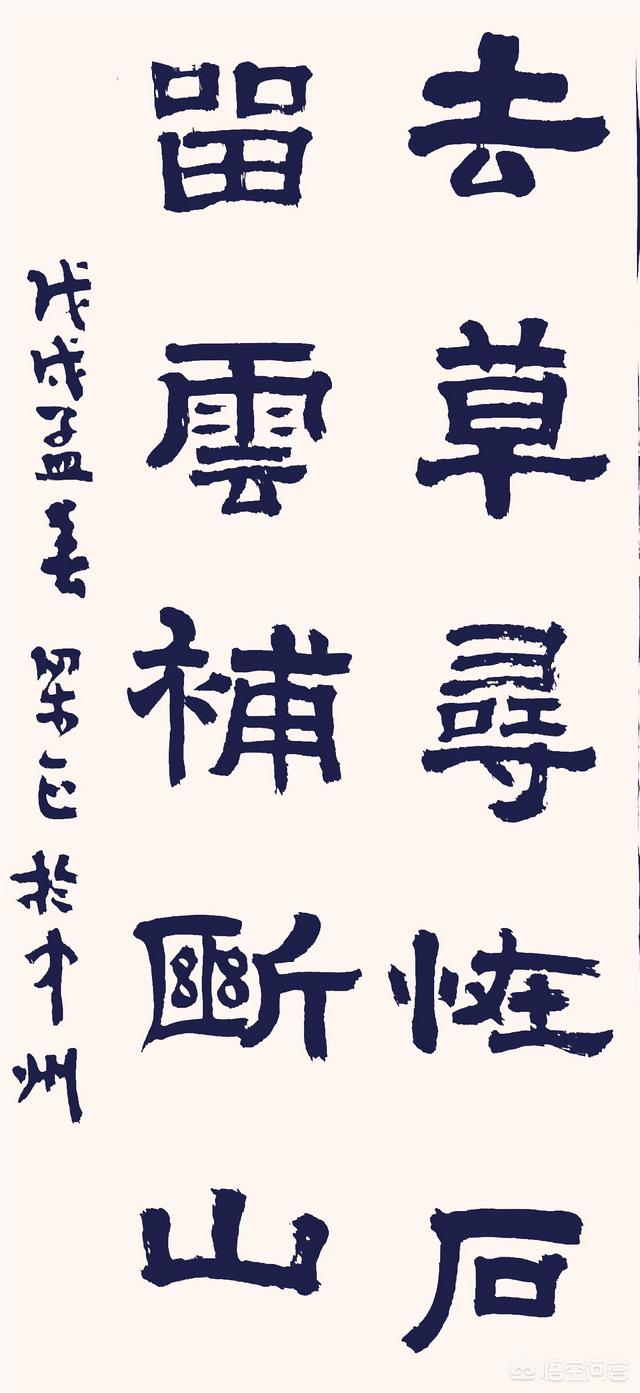 去草尋恠石
留雲補斷山
戊戌孟春 於中州
悟空问答